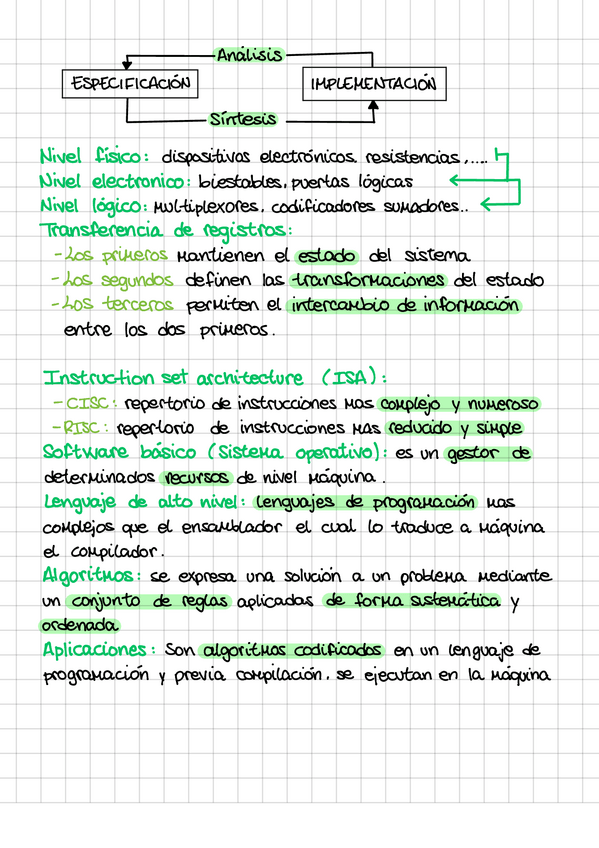 Análisis
ESPECIFICACIÓN IMPLEMENTACIÓN
Síntesis
Nivel físico: dispositivos electrónicos. resistencias,....
Nivel electronico: biestables, puertas lógicas
Nivel lógico: multiplexores, codificadores sumadores..
Transferencia de registros:
-Los primeros mantienen el estado del sistema
-Los segundos definen las transformaciones del estado
-Los terceros permiten el intercambio de información
entre los dos primeros.
Instruction set architecture (ISA):
-CISC: repertorio de instrucciones mas complejo y numeroso
-RISC: repertorio de instrucciones mas reducido y simple
Software básico (Sistema operativo): es un gestor de
determinados recursos de nivel máquina.
Lenguaje de alto nivel: lenguajes de programación mas
complejos que el ensamblador el cual lo traduce a máquina
el compilador.
Algoritmos: se expresa una solución a un problema mediante
un conjunto de reglas aplicadas de forma sistemática y
ordenada
Aplicaciones: Son algoritmos codificados en un lenguaje de
programación y previa compilación, se ejecutan en la máquina